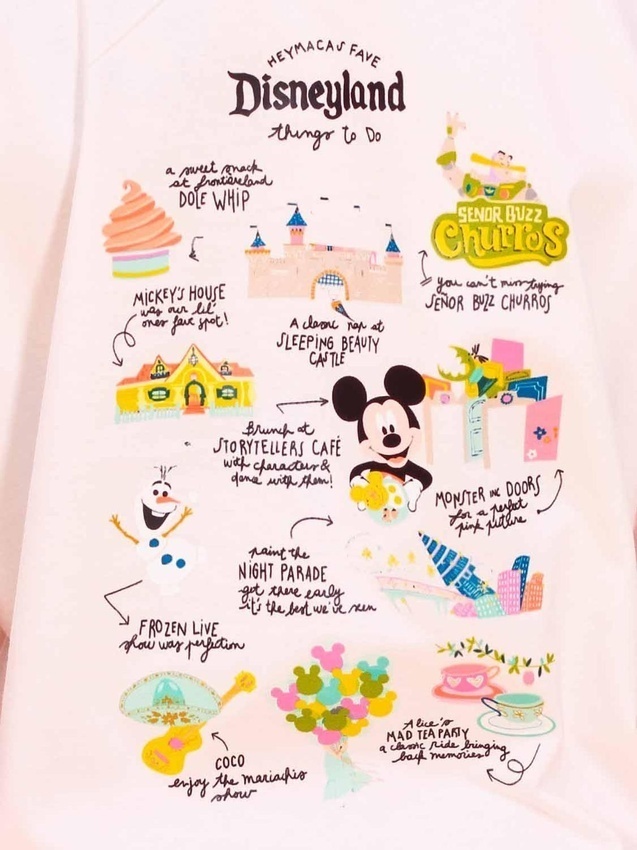 HEYMACAS FAVE
Disneyland
things to Do
a sweet snack
at frontiereland
DOLE WHIP
SENOR BUZZ
Churros
you can't miss trying
SEÑOR BUZZ CHURROS
MICKEY'S HOUSE
was our lil'
ones fave spot!
A classic nap at
SLEEPING BEAUTY
CASTLE
Brunch at
STORYTELLERS CAFÉ
with characters &
dance with them!
MONSTER INC DOORS
for a perfect
pink picture
paint the
NIGHT PARADE
get there early
it's the best we've seen
FROZEN LIVE
show was perfection
COCO
enjoy the mariachis
show
Alice's
MAD TEA PARTY
a classic ride bringing
back memories